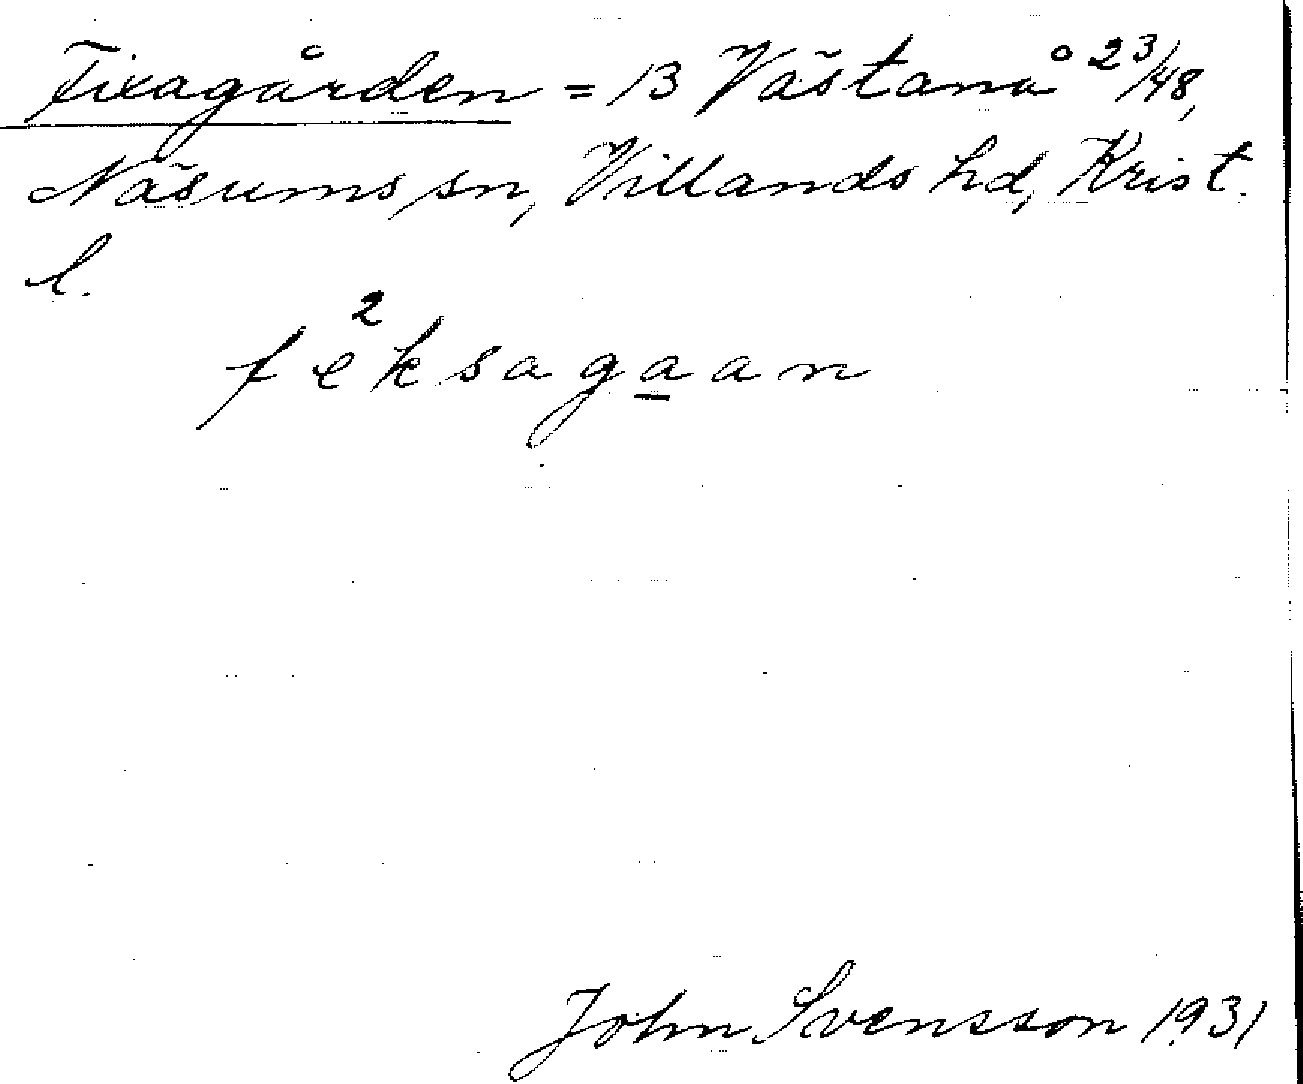 Fixagården = 13 Västanå 23/48,
Näsums sn, Villands hd, Krist.
l.
fe²ksagaan
John Svensson 1931